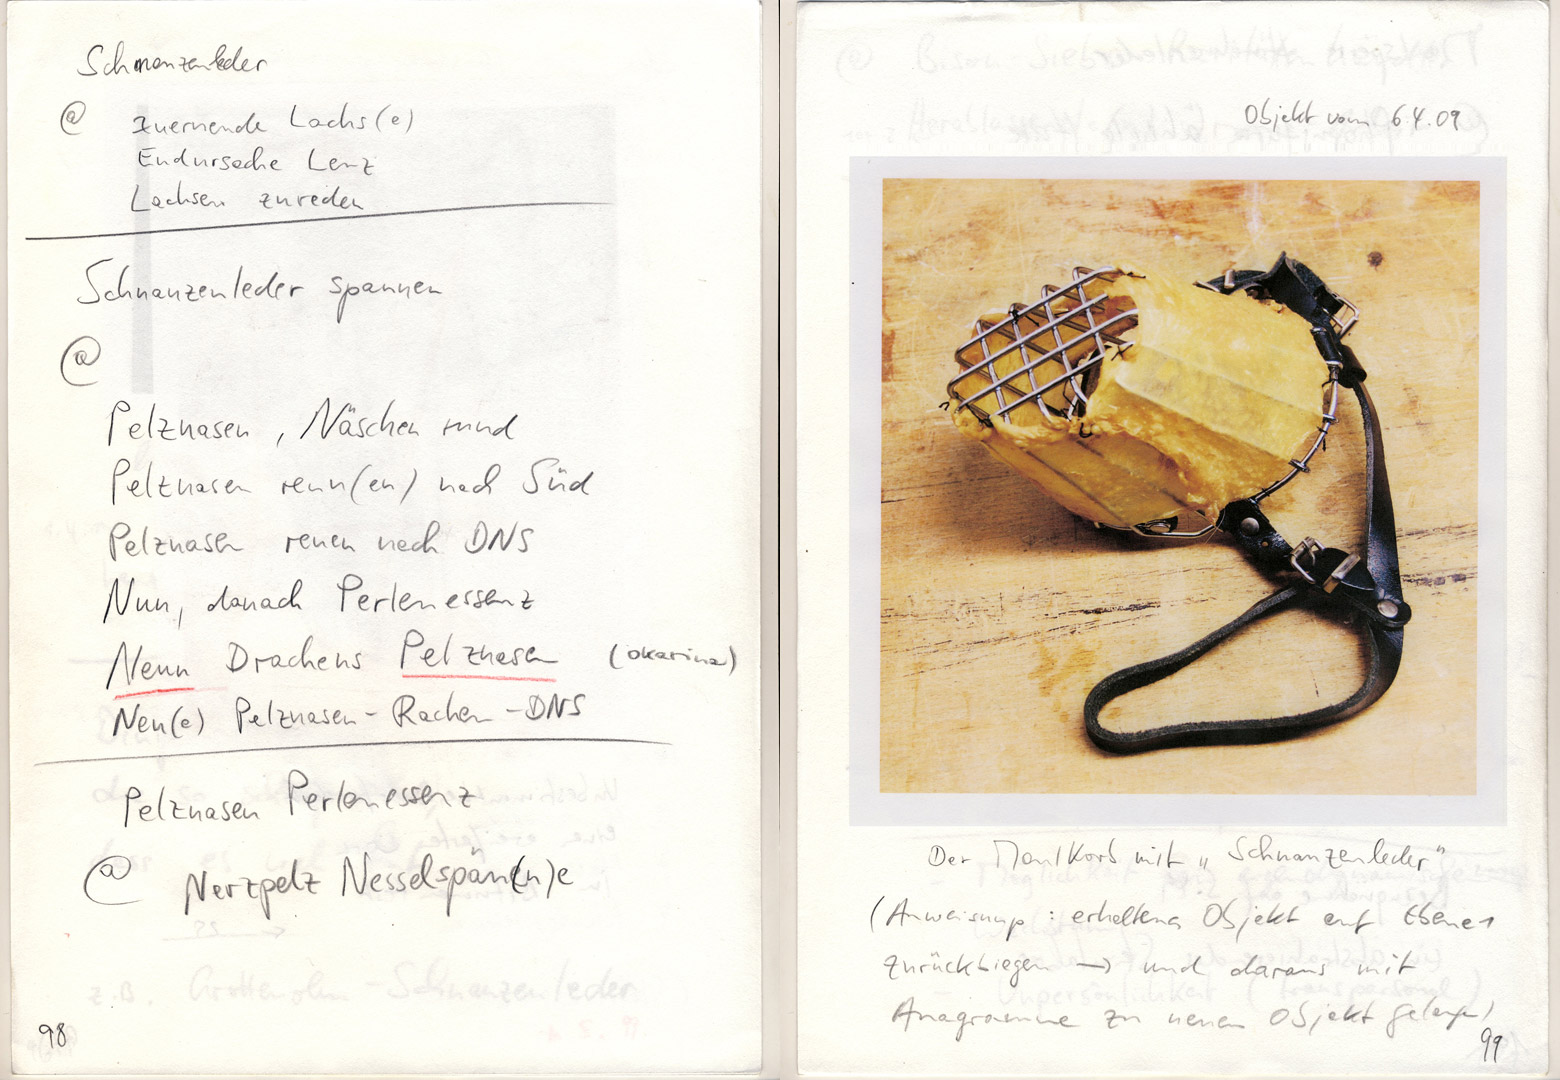 Schnanzenleder
@ zuernende Lachs(e)
Endursache Lenz
Lachsen zureden
Schnanzenleder spannen
@
Pelznasen, Näschen rund
Pelznasen renn(en) nach Süd
Pelznasen renen nach DNS
Nun, danach Perlenessenz
Nenn Drachens Pelznasen (okarina)
Neu(e) Pelznasen-Rachen-DNS
Pelznasen Perlenessenz
@ Nerzpelz Nesselspän(n)e
98
Objekt vom 6.4.09
Der Maulkorb mit „Schnanzenleder"
(Anweisung: erhaltenes Objekt auf Ebene 1
zurückbiegen → und daraus mit
Anagramme zu neuen Objekt gelangen)
99